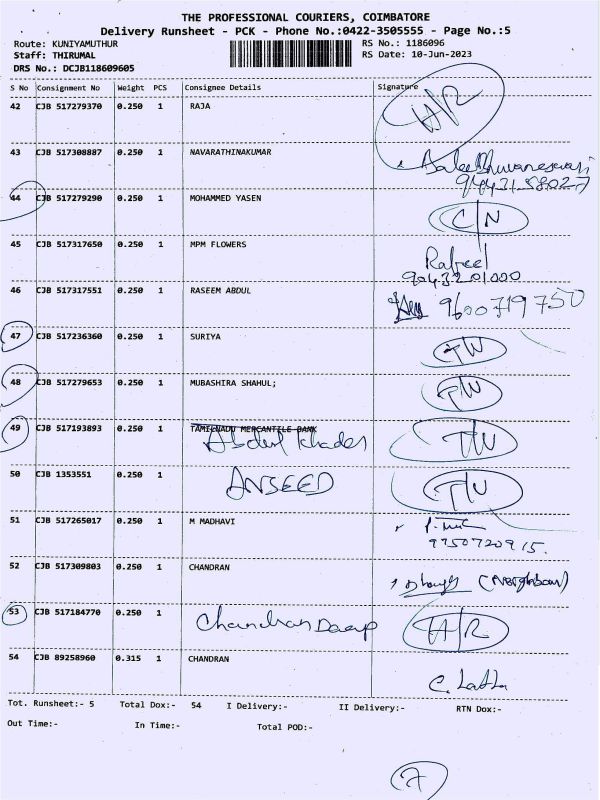 THE PROFESSIONAL COURIERS, COIMBATORE
Delivery Runsheet - PCK - Phone No.:0422-3505555 - Page No.:5
Route: KUNIYAMUTHUR RS No.: 1186096
Staff: THIRUMAL RS Date: 10-Jun-2023
DRS No.: DCJB118609605
S No Consignment No Weight PCS Consignee Details Signature
42 CJB 517279370 0.250 1 RAJA H/R
43 CJB 517308887 0.250 1 NAVARATHINAKUMAR
9443158027
44 CJB 517279290 0.250 1 MOHAMMED YASEN C/N
45 CJB 517317650 0.250 1 MPM FLOWERS Rafeel
9043201000
46 CJB 517317551 0.250 1 RASEEM ABDUL 9600719750
47 CJB 517236360 0.250 1 SURIYA T/W
48 CJB 517279653 0.250 1 MUBASHIRA SHAHUL; T/W
49 CJB 517193893 0.250 1 TAMILNADU MERCANTILE BANK T/W
Abdul Khader
50 CJB 1353551 0.250 1 ANSEED T/W
51 CJB 517265017 0.250 1 M MADHAVI
9750720915.
52 CJB 517309803 0.250 1 CHANDRAN
53 CJB 517184770 0.250 1 Chandran Daap H/R
54 CJB 89258960 0.315 1 CHANDRAN C. Latha
Tot. Runsheet:- 5 Total Dox:- 54 I Delivery:- II Delivery:- RTN Dox:-
Out Time:- In Time:- Total POD:-
7